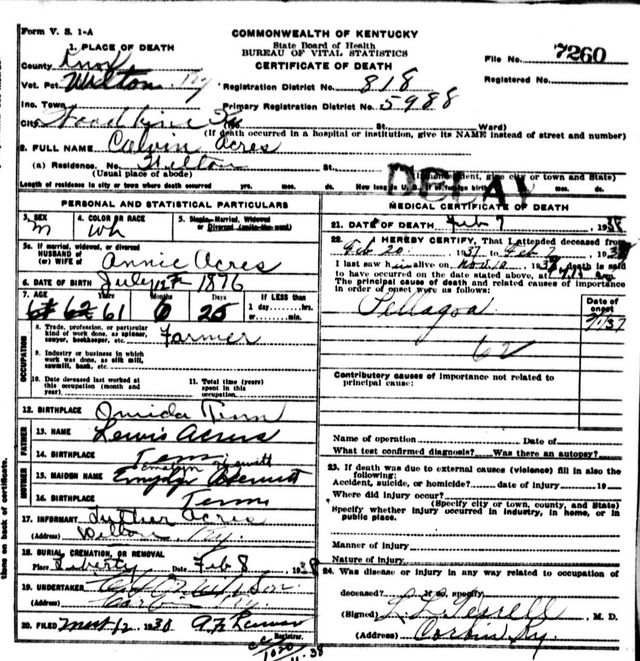 Form V. S. 1-A
COMMONWEALTH OF KENTUCKY
State Board of Health
BUREAU OF VITAL STATISTICS
CERTIFICATE OF DEATH
File No. 7260
Registered No.
1. PLACE OF DEATH
County Knox
Vot. Pct. Wilton Ky
Registration District No. 818
Inc. Town
Primary Registration District No. 5988
City Woodbine Ky St. Ward)
(If death occurred in a hospital or institution, give its NAME instead of street and number)
2. FULL NAME Calvin Acres
(a) Residence. No. Wilton St.
(Usual place of abode)
DELAY
give city or town and State)
Length of residence in city or town where death occurred yrs. mos. ds. How long in U.S. if of foreign birth yrs. mos. ds.
PERSONAL AND STATISTICAL PARTICULARS
3. SEX m
4. COLOR OR RACE Wh
5. Single, Married, Widowed or Divorced (write the word)
5a. If married, widowed, or divorced
HUSBAND of
(or) WIFE of Annie Acres
6. DATE OF BIRTH July 12 1876
7. AGE 62 61 Years Months 6 Days 25
If LESS than 1 day, hrs. or min.
OCCUPATION
8. Trade, profession, or particular kind of work done, as spinner, sawyer, bookkeeper, etc. Farmer
9. Industry or business in which work was done, as silk mill, sawmill, bank, etc.
10. Date deceased last worked at this occupation (month and year)
11. Total time (years) spent in this occupation
12. BIRTHPLACE Oneida Tenn
FATHER
13. NAME Lewis Acres
14. BIRTHPLACE Tenn
MOTHER
15. MAIDEN NAME Hewitt
16. BIRTHPLACE Tenn
17. INFORMANT Luther Acres
(Address) Wilton Ky.
18. BURIAL, CREMATION, OR REMOVAL
Place Liberty Date Feb 8 1938
19. UNDERTAKER
(Address)
20. FILED 12 1938
Registrar.
MEDICAL CERTIFICATE OF DEATH
21. DATE OF DEATH Feb 7, 1938
22. I HEREBY CERTIFY, That I attended deceased from
Feb 20, 1937 to Feb 7, 1938
I last saw him alive on 1937 death is said
to have occurred on the date stated above, at m.
The principal cause of death and related causes of importance
in order of onset were as follows:
Date of onset
Pellagra
62
Contributory causes of importance not related to principal cause:
Name of operation Date of
What test confirmed diagnosis? Was there an autopsy?
23. If death was due to external causes (violence) fill in also the following:
Accident, suicide, or homicide? date of injury 19
Where did injury occur?
(Specify city or town, county, and State)
Specify whether injury occurred in industry, in home, or in public place.
Manner of injury
Nature of injury
24. Was disease or injury in any way related to occupation of
deceased? If so, specify
(Signed) L. L. Terrell, M. D.
(Address) Corbin Ky.
tions on back of certificate.